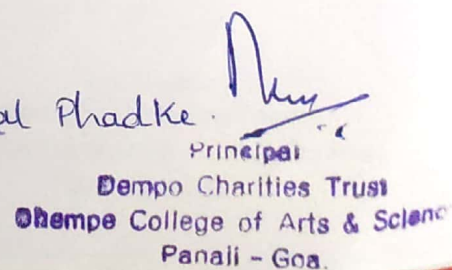 al Phadke.
Principal
Dempo Charities Trust
Dhempe College of Arts & Scienc
Panaji - Goa.